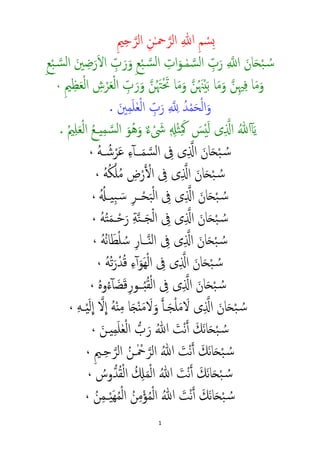 بِسْمِ اللهِ الرَّحْمٰنِ الرَّحِيمِ
سُبْحَانَ اللهِ رَبِّ السَّمٰوَاتِ السَّبْعِ وَرَبِّ الْاَرَضِينَ السَّبْعِ
وَمَا فِيهِنَّ وَمَا بَيْنَهُنَّ وَمَا تَحْتَهُنَّ وَرَبِّ الْعَرْشِ الْعَظِيمِ ،
وَالْحَمْدُ لِلّٰهِ رَبِّ الْعٰلَمِينَ .
يَآ اَللهُ الَّذِى لَيْسَ كَمِثْلِهِ شَىْءٌ وَهُوَ السَّمِيعُ الْعَلِيمُ .
سُبْحَانَ الَّذِى فِى السَّمَآءِ عَرْشُهُ ،
سُبْحَانَ الَّذِى فِى الْأَرْضِ مُلْكُهُ ،
سُبْحَانَ الَّذِى فِى الْبَحْرِ سَبِيلُهُ ،
سُبْحَانَ الَّذِى فِى الْجَنَّةِ رَحْمَتُهُ ،
سُبْحَانَ الَّذِى فِى النَّارِ سُلْطَانُهُ ،
سُبْحَانَ الَّذِى فِى الْهَوَآءِ قُدْرَتُهُ ،
سُبْحَانَ الَّذِى فِى الْقُبُورِ قَضَآءُوهُ ،
سُبْحَانَ الَّذِى لَامَلْجَأَ وَلَامَنْجَا مِنْهُ اِلَّا اِلَيْهِ ،
سُبْحَانَكَ أَنْتَ اللهُ رَبُّ الْعٰلَمِينَ ،
سُبْحَانَكَ أَنْتَ اللهُ الرَّحْمٰنُ الرَّحِيمِ ،
سُبْحَانَكَ أَنْتَ اللهُ الْمَلِكُ الْقُدُّوسُ ،
سُبْحَانَكَ أَنْتَ اللهُ الْمُؤْمِنُ الْمُهَيْمِنُ ،
1